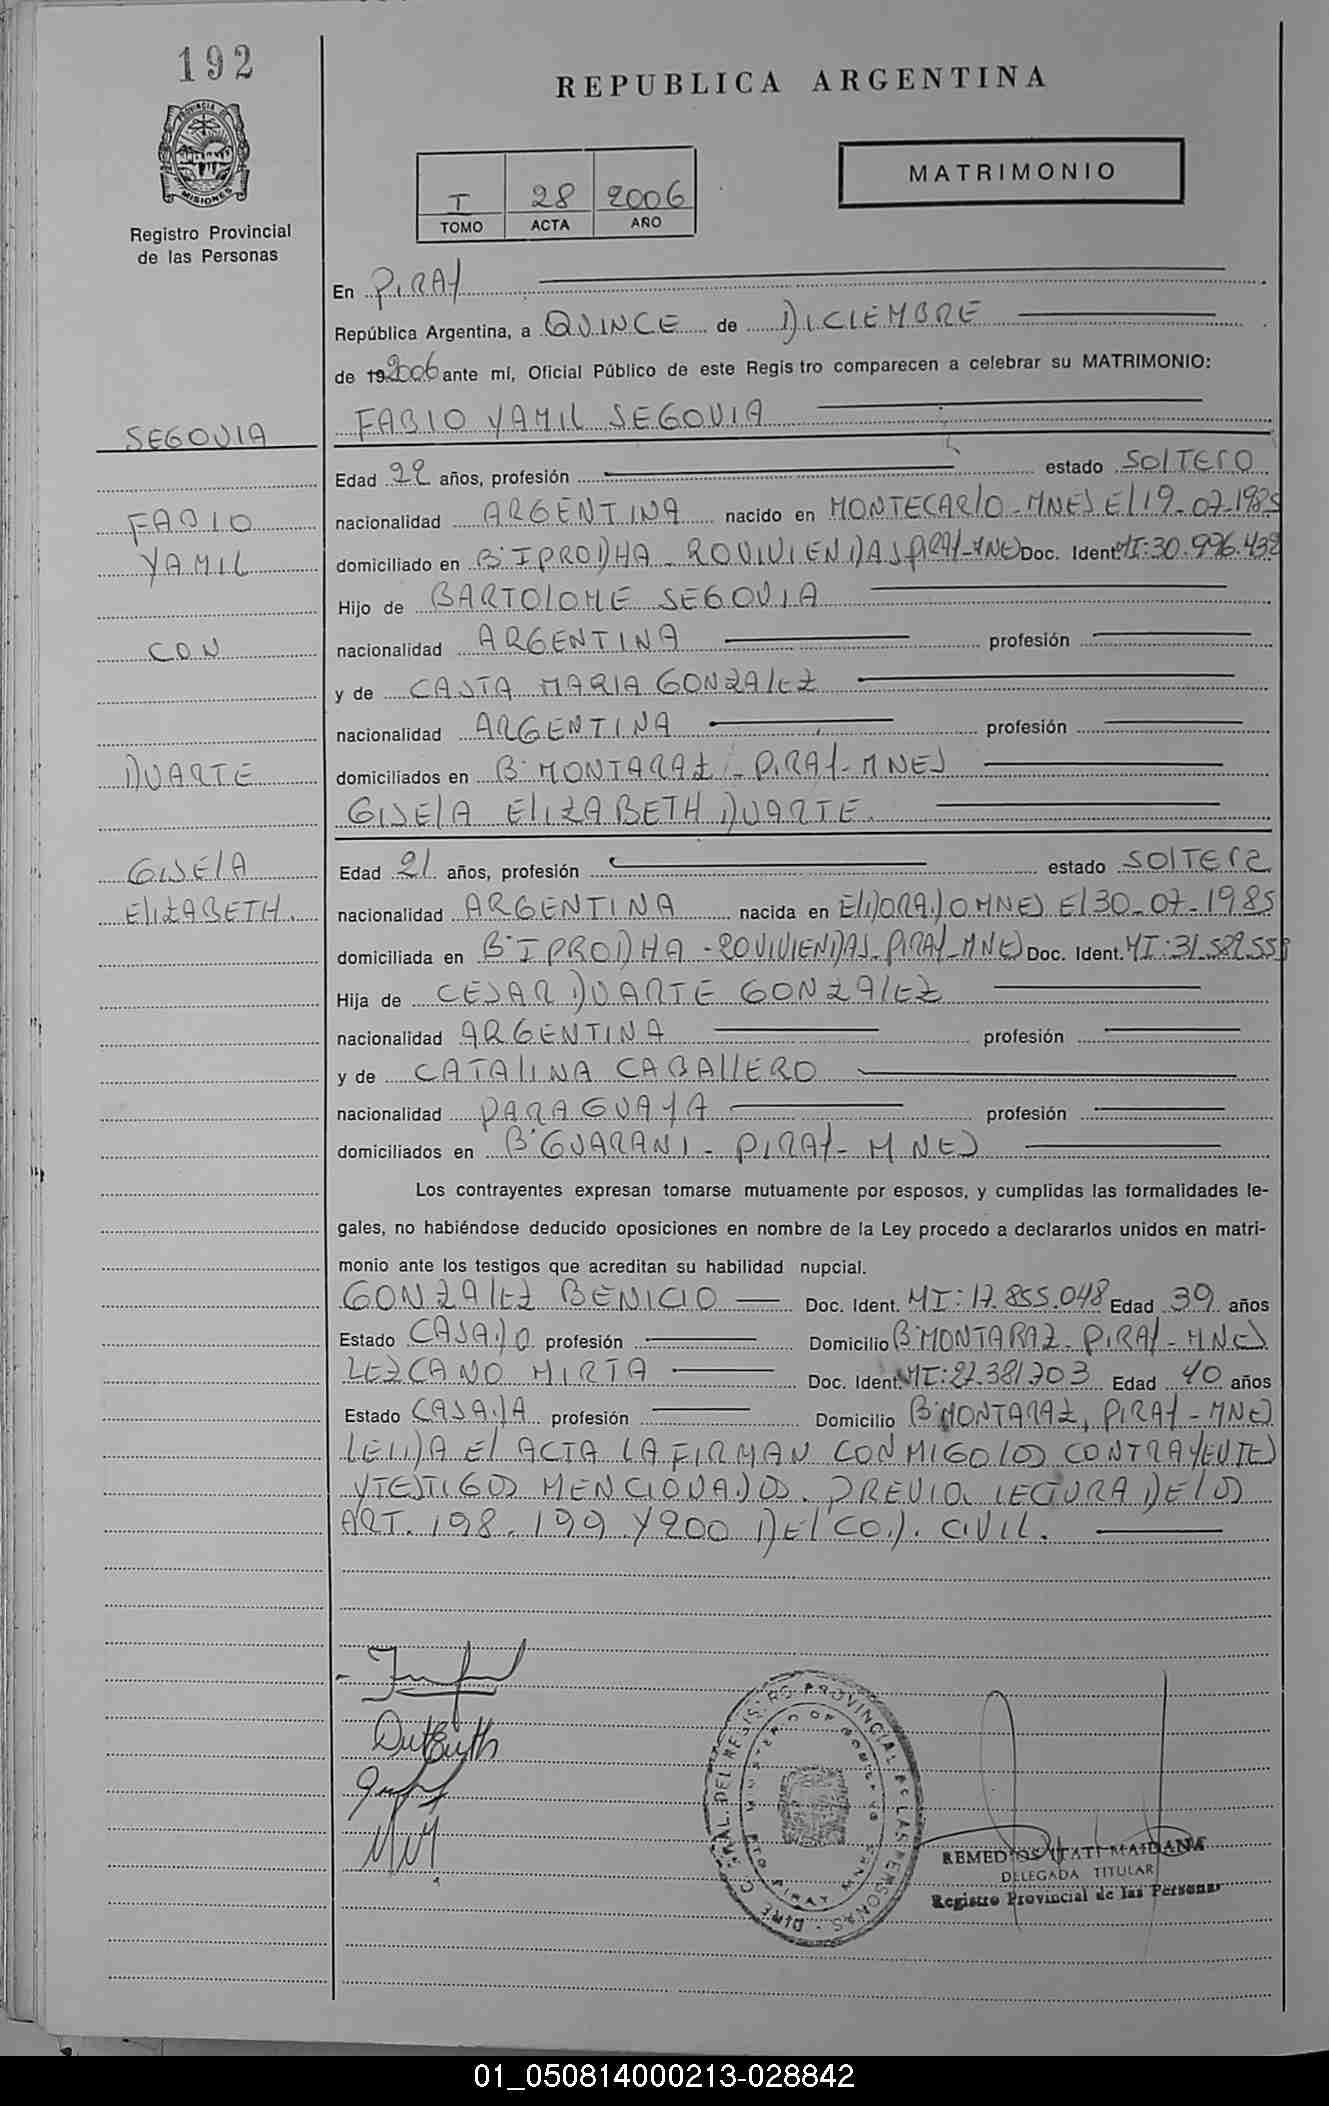 192
REPUBLICA ARGENTINA
PROVINCIA DE
MISIONES
Registro Provincial
de las Personas
MATRIMONIO
I 28 2006
TOMO ACTA AÑO
En PIRAY
República Argentina, a QUINCE de DICIEMBRE
de 192006 ante mí, Oficial Público de este Registro comparecen a celebrar su MATRIMONIO:
SEGOVIA
FABIO YAMIL SEGOVIA
Edad 22 años, profesión estado SOLTERO
FABIO
nacionalidad ARGENTINA nacido en MONTECARLO - MNES El 19-07-1985
YAMIL
domiciliado en B° IPRODHA - 20 VIVIENDAS PIRAY - MNES Doc. Ident. MI: 30.996.432
Hijo de BARTOLOME SEGOVIA
CON
nacionalidad ARGENTINA profesión
y de CASTA MARIA GONZALEZ
nacionalidad ARGENTINA profesión
DUARTE
domiciliados en B° MONTARAZ - PIRAY - MNES
GISELA ELIZABETH DUARTE
GISELA
Edad 21 años, profesión estado SOLTERA
ELIZABETH.
nacionalidad ARGENTINA nacida en ELDORADO MNES El 30-07-1985
domiciliada en B° IPRODHA - 20 VIVIENDAS - PIRAY - MNES Doc. Ident. MI: 31.582.55
Hija de CESAR DUARTE GONZALEZ
nacionalidad ARGENTINA profesión
y de CATALINA CABALLERO
nacionalidad PARAGUAYA profesión
domiciliados en B° GUARANI - PIRAY - MNES
Los contrayentes expresan tomarse mutuamente por esposos, y cumplidas las formalidades le-
gales, no habiéndose deducido oposiciones en nombre de la Ley procedo a declararlos unidos en matri-
monio ante los testigos que acreditan su habilidad nupcial.
GONZALEZ BENICIO Doc. Ident. MI: 17.855.048 Edad 39 años
Estado CASADO profesión Domicilio B° MONTARAZ - PIRAY - MNES
LEZCANO MIRTA Doc. Ident. MI: 27.381.703 Edad 40 años
Estado CASADA profesión Domicilio B° MONTARAZ, PIRAY - MNES
LEIDA El ACTA LA FIRMAN CONMIGO LOS CONTRAYENTES
Y TESTIGOS MENCIONADOS. PREVIO LECTURA DE LOS
ART. 198. 199 Y 200 DEL COD. CIVIL.
REMEDIOS ITATI MAIDANA
DELEGADA TITULAR
Registro Provincial de las Personas
01_050814000213-028842